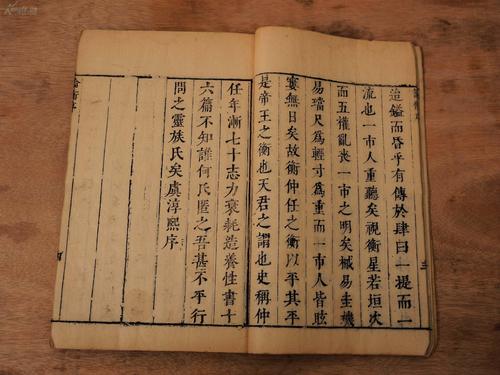 造鎰而昏乎有傳於肆曰一提而一
流也一市人重聽矣視衡星若垣次
而五權亂喪一市之明矣械易圭璣
易璫尺為輕寸為重而一市人皆眩
窶無日矣故衡仲任之衡以平其平
是帝王之衡也天君之謂也史稱仲
任年漸七十志力衰耗造養性書十
六篇不知誰何氏匿之吾甚不平行
問之靈族氏矣虞淳熙序